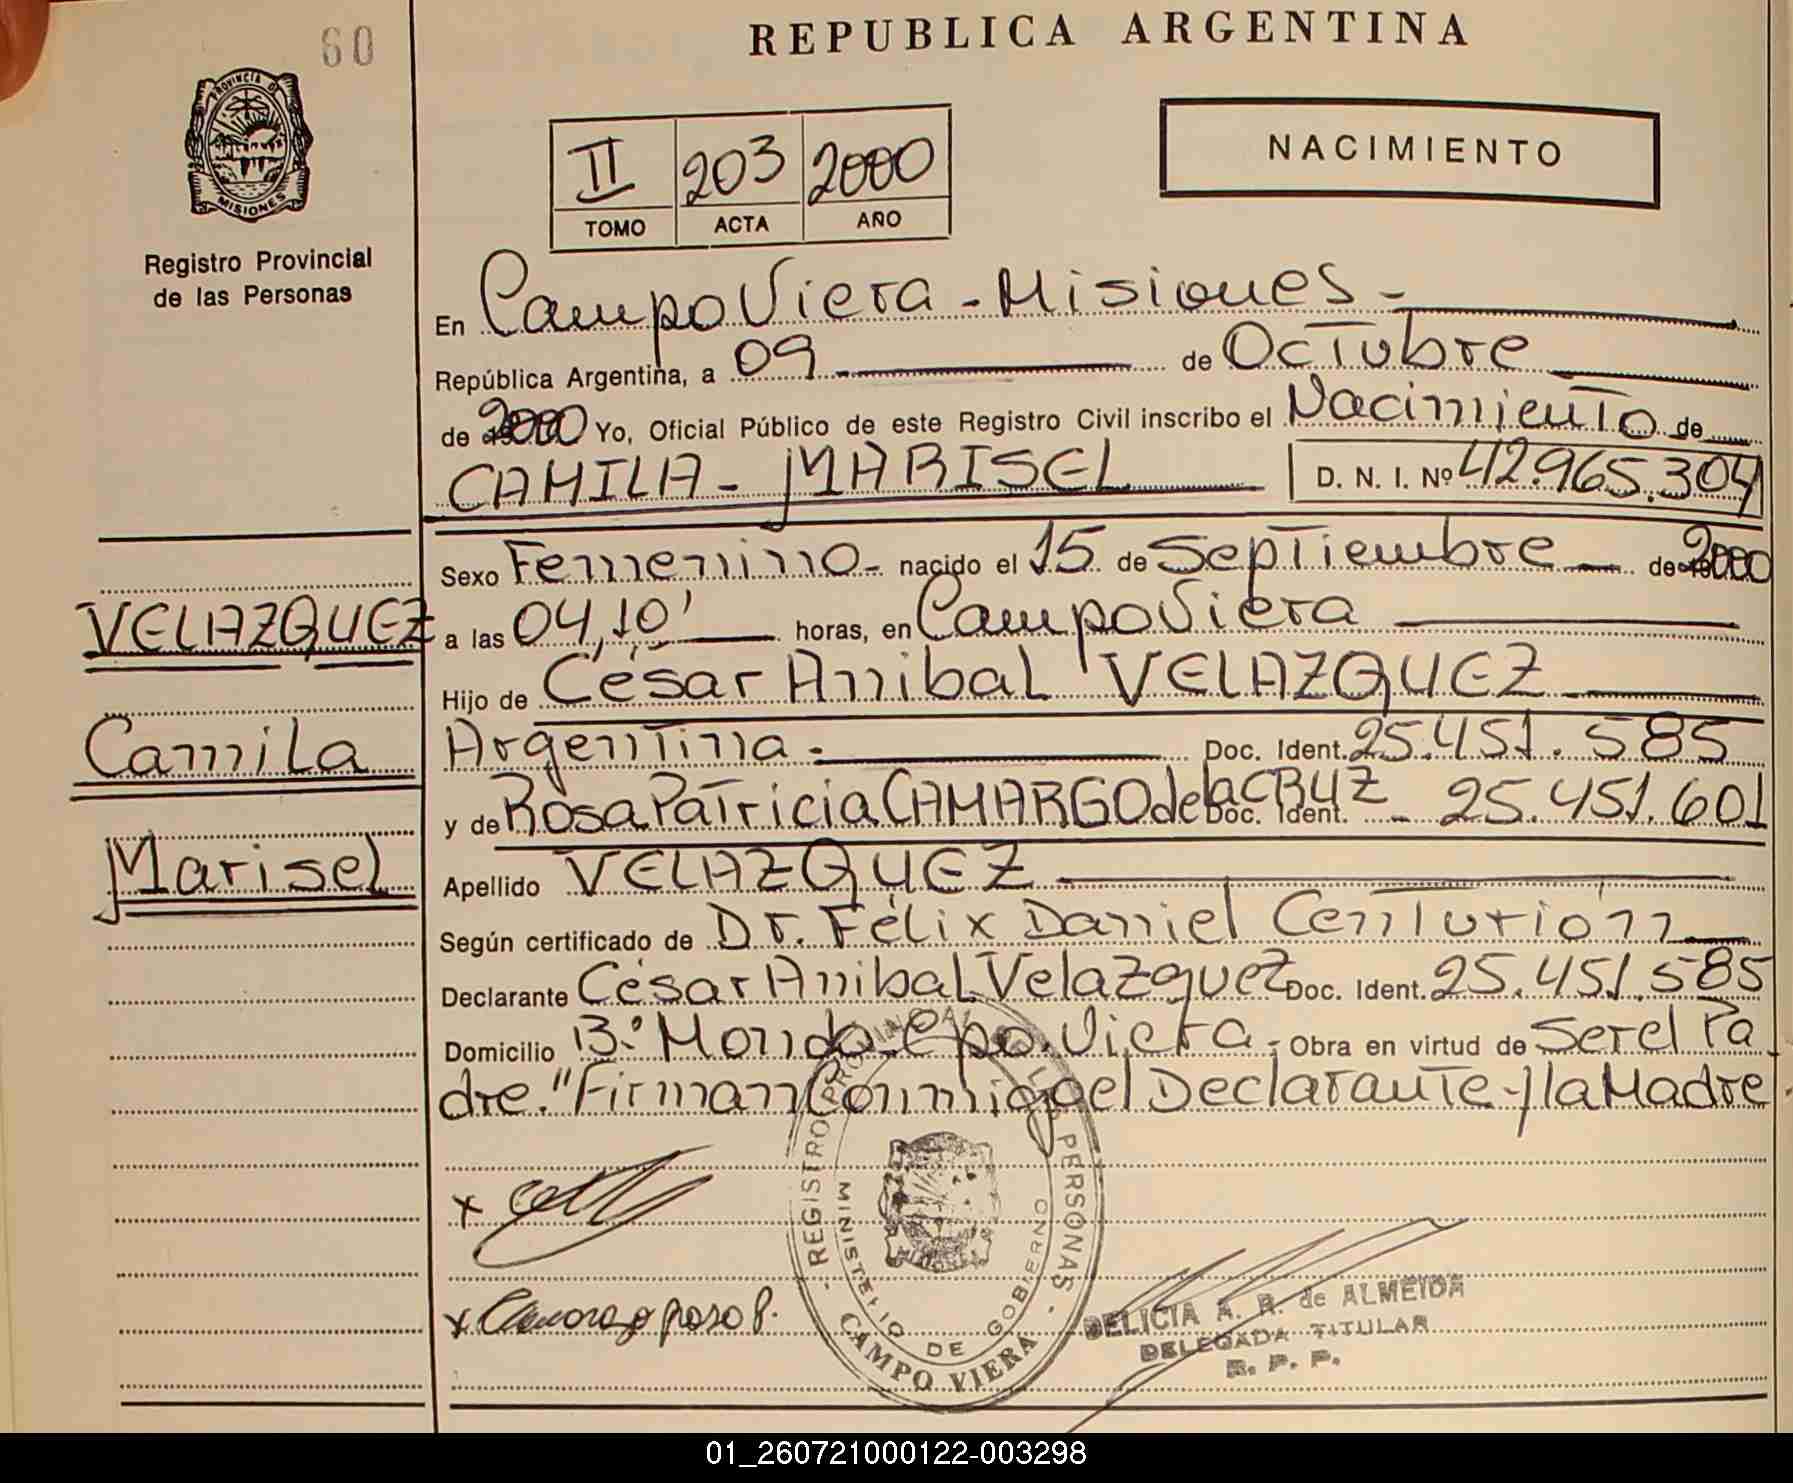 60
REPUBLICA ARGENTINA
PROVINCIA DE
MISIONES
Registro Provincial
de las Personas
II 203 2000
TOMO ACTA AÑO
NACIMIENTO
En Campo Viera - Misiones -
República Argentina, a 09 de Octubre
de 2000 Yo, Oficial Público de este Registro Civil inscribo el Nacimiento de
CAMILA - MARISEL D. N. I. Nº 42.965.304
Sexo Femenino - nacido el 15 de Septiembre de 2000
VELAZQUEZ a las 04,10' horas, en Campo Viera
Hijo de César Anibal VELAZQUEZ
Camila Argentina. Doc. Ident. 25.451.585
y de Rosa Patricia CAMARGO de la CRUZ Doc. Ident. - 25.451.601
Marisel Apellido VELAZQUEZ
Según certificado de Dr. Félix Daniel Centurión
Declarante César Anibal Velazquez Doc. Ident. 25.451.585
Domicilio B° Mondo - Cpo. Viera - Obra en virtud de Ser el Pa
dre. "Firman Conmigo el Declarante y la Madre
x
x Camargo Rosa P.
REGISTRO PROVINCIAL DE LAS PERSONAS
MINISTERIO DE GOBIERNO
CAMPO VIERA
DELICIA A. R. de ALMEIDA
DELEGADA TITULAR
R. P. P.
01_260721000122-003298